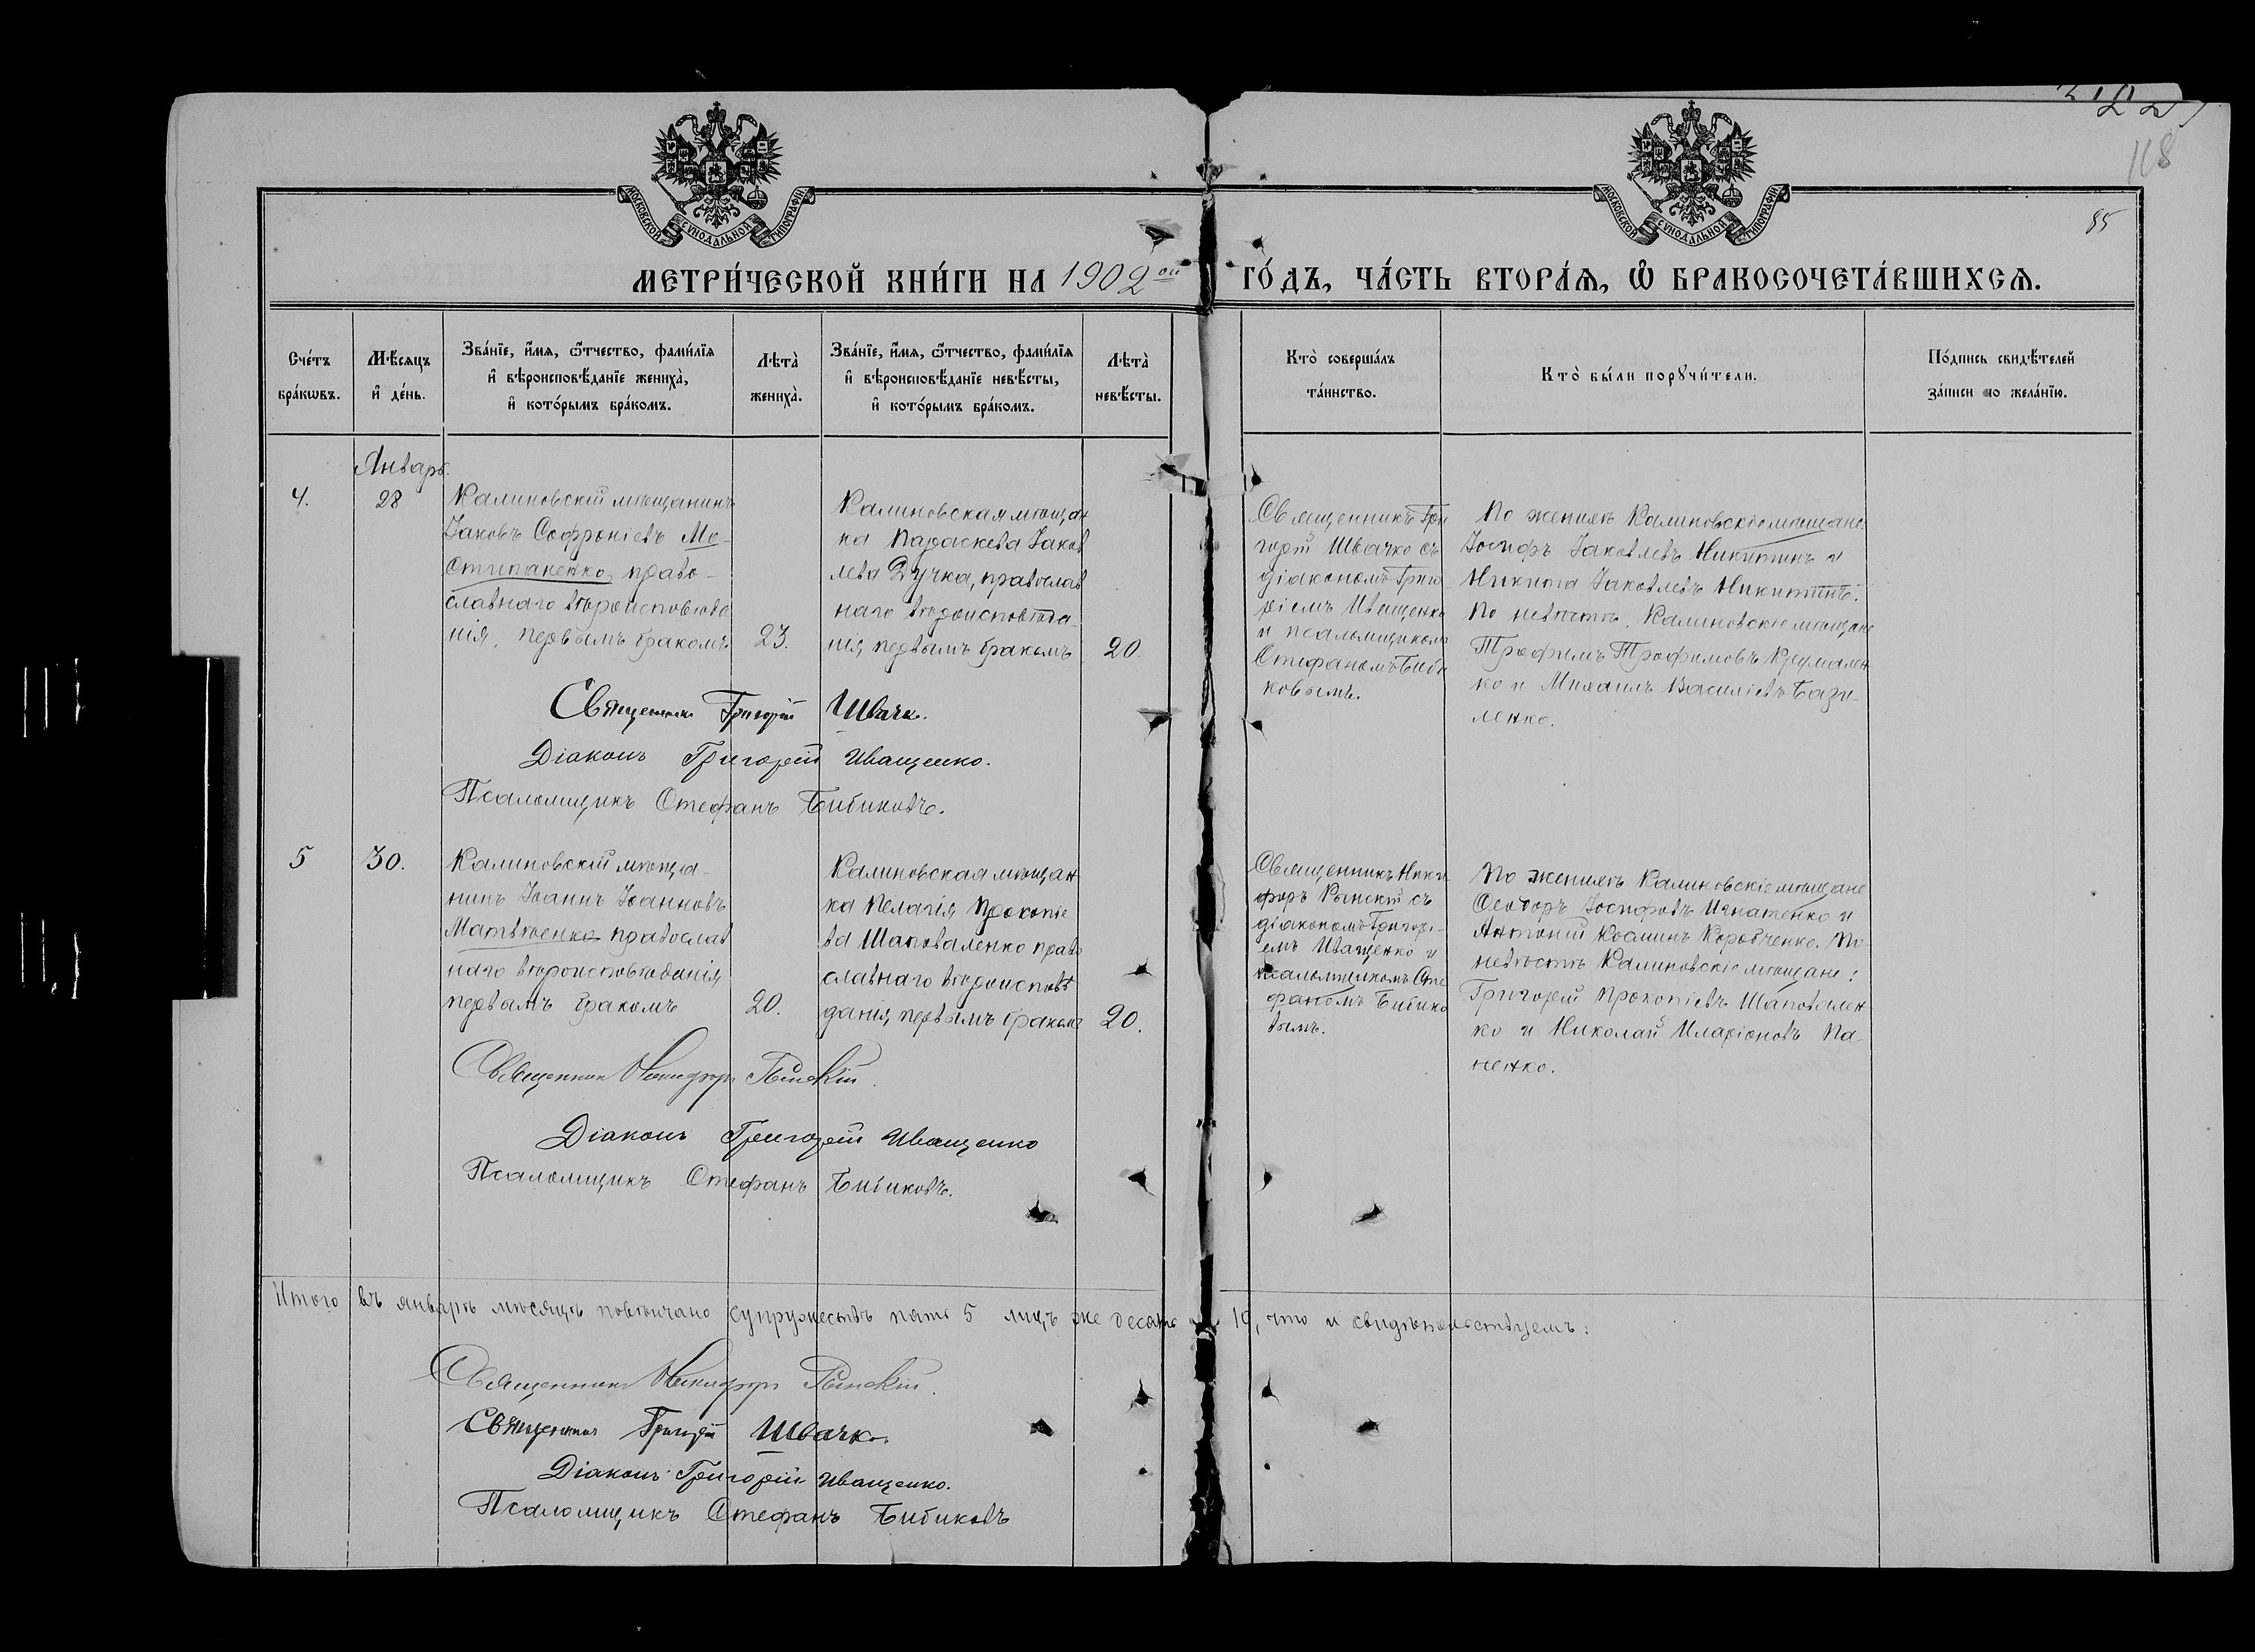 118
85
МОСКОВСКОЙ СѴНОДАЛЬНОЙ ТИПОГРАФІИ
МОСКОВСКОЙ СѴНОДАЛЬНОЙ ТИПОГРАФІИ
МЕТРИ́ЧЕСКОЙ КНИ́ГИ НА 1902 ой ГО́ДЪ, ЧА́СТЬ ВТОРА́Ѧ, Ѽ БРАКОСОЧЕТА́ВШИХСѦ.
Сче́тъ
бра́кѡвъ.
Мѣ́сяцъ
и҆ де́нь.
Зва́нїе, и҆́мя, ѻ҆́тчество, фами́лїя
и҆ вѣроисповѣ́данїе жениха̀,
и҆ кото́рымъ бра́комъ.
Лѣта̀
жениха̀.
Зва́нїе, и҆́мя, ѻ҆́тчество, фами́лїя
и҆ вѣроисповѣ́данїе невѣ́сты,
и҆ кото́рымъ бра́комъ.
Лѣта̀
невѣ́сты.
Кто̀ соверша́лъ
та́инство.
Кто̀ бы́ли порꙋчи́тели.
По́дпись свидѣ́телей
за́писи по жела́нїю.
Январь.
4.
28
Калиновскій мѣщанинъ
Іаковъ Софроніевъ Мо-
стипаненко, право-
славнаго вѣроисповѣда
нія, первымъ бракомъ
23.
Калиновская мѣщан
ка Параскева Іаков
лева Дучка, православ
наго вѣроисповѣда-
нія, первымъ бракомъ
20.
Священникъ Гри
горій Швачко съ
діакономъ Григо
ріемъ Иващенко
и псаломщикомъ
Стефаномъ Биби
ковымъ.
По женихѣ Калиновскіе мѣщане:
Іосифъ Іаковлевъ Никитинъ и
Никита Іаковлевъ Никитинъ.
По невѣстѣ, Калиновскіе мѣщане
Трофимъ Трофимовъ
ко и Михаилъ Василіевъ Бази-
ленко.
Священникъ Григорій Швачко.
Діаконъ Григорій Иващенко.
Псаломщикъ Стефанъ Бибиковъ.
5
30.
Калиновскій мѣща-
нинъ Іоаннъ Іоанновъ
Матвѣенко православ
наго вѣроисповѣданія
первымъ бракомъ
20.
Калиновская мѣщан
ка Пелагія Прокопіе
ва Шаповаленко право
славнаго вѣроисповѣ
данія, первымъ бракомъ
20.
Священникъ Ники
форъ Рынскій съ
діакономъ Григорі-
емъ Иващенко и
псаломщикомъ Сте
фаномъ Бибико
вымъ.
По женихѣ Калиновскіе мѣщане
Ѳеодоръ Іосифовъ Игнатенко и
Антоній Косминъ Коробченко. По
невѣстѣ Калиновскіе мѣщане:
Григорій Прокопіевъ Шаповален
ко и Николай Иларіоновъ Па-
ненко.
Священникъ Никифоръ Рынскій.
Діаконъ Григорій Иващенко
Псаломщикъ Стефанъ Бибиковъ.
Итого въ январѣ мѣсяцѣ повѣнчано супружествъ пять 5 лицъ же десять 10, что и свидѣтельствуемъ:
Священникъ Никифоръ Рынскій.
Священникъ Григорій Швачко.
Діаконъ Григорій Иващенко.
Псаломщикъ Стефанъ Бибиковъ